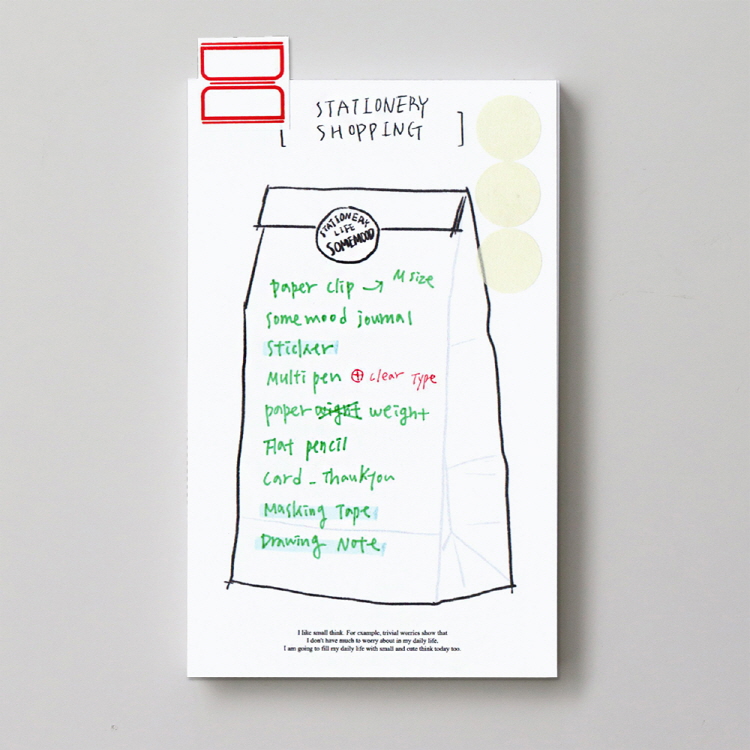 STATIONERY
SHOPPING
STATIONERY
LIFE
SOMEMOOD
paper clip → M size
somemood journal
Sticker
Multi pen ⊕ clear Type
paper weight
Flat pencil
Card - Thankyou
Masking Tape
Drawing Note
I like small think. For example, trivial worries show that
I don't have much to worry about in my daily life.
I am going to fill my daily life with small and cute think today too.